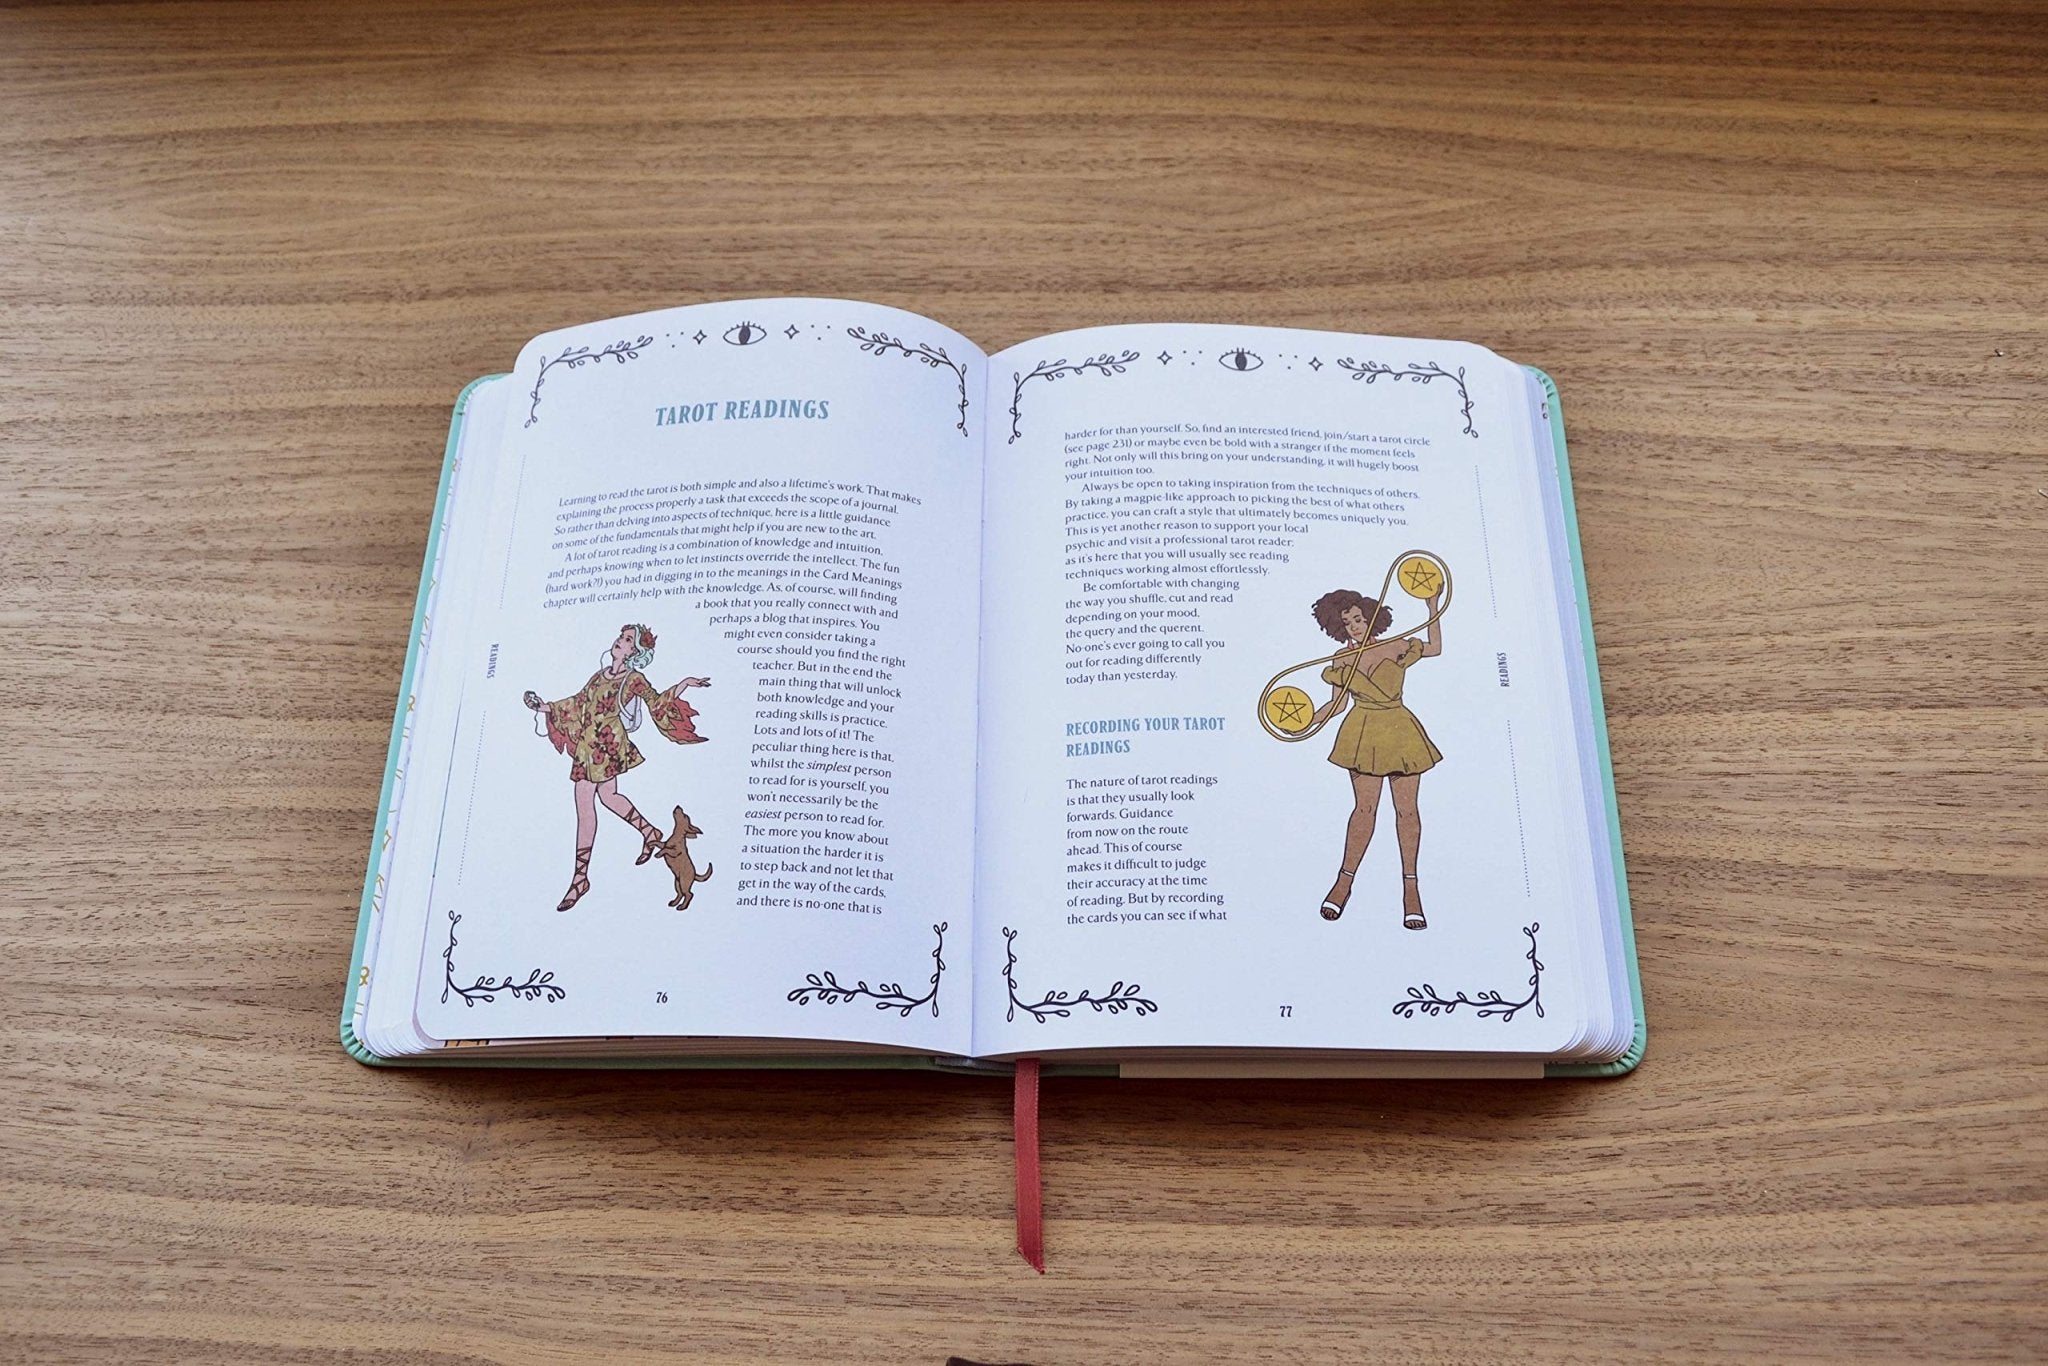 TAROT READINGS
Learning to read the tarot is both simple and also a lifetime's work. That makes
explaining the process properly a task that exceeds the scope of a journal.
So rather than delving into aspects of technique, here is a little guidance
on some of the fundamentals that might help if you are new to the art.
A lot of tarot reading is a combination of knowledge and intuition,
and perhaps knowing when to let instincts override the intellect. The fun
(hard work?!) you had in digging in to the meanings in the Card Meanings
chapter will certainly help with the knowledge. As, of course, will finding
a book that you really connect with and
perhaps a blog that inspires. You
might even consider taking a
course should you find the right
teacher. But in the end the
main thing that will unlock
both knowledge and your
reading skills is practice.
Lots and lots of it! The
peculiar thing here is that,
whilst the simplest person
to read for is yourself, you
won't necessarily be the
easiest person to read for.
The more you know about
a situation the harder it is
to step back and not let that
get in the way of the cards,
and there is no-one that is
READINGS
76
harder for than yourself. So, find an interested friend, join/start a tarot circle
(see page 231) or maybe even be bold with a stranger if the moment feels
right. Not only will this bring on your understanding, it will hugely boost
your intuition too.
Always be open to taking inspiration from the techniques of others.
By taking a magpie-like approach to picking the best of what others
practice, you can craft a style that ultimately becomes uniquely you.
This is yet another reason to support your local
psychic and visit a professional tarot reader;
as it's here that you will usually see reading
techniques working almost effortlessly.
Be comfortable with changing
the way you shuffle, cut and read
depending on your mood,
the query and the querent.
No-one's ever going to call you
out for reading differently
today than yesterday.
RECORDING YOUR TAROT
READINGS
The nature of tarot readings
is that they usually look
forwards. Guidance
from now on the route
ahead. This of course
makes it difficult to judge
their accuracy at the time
of reading. But by recording
the cards you can see if what
READINGS
77